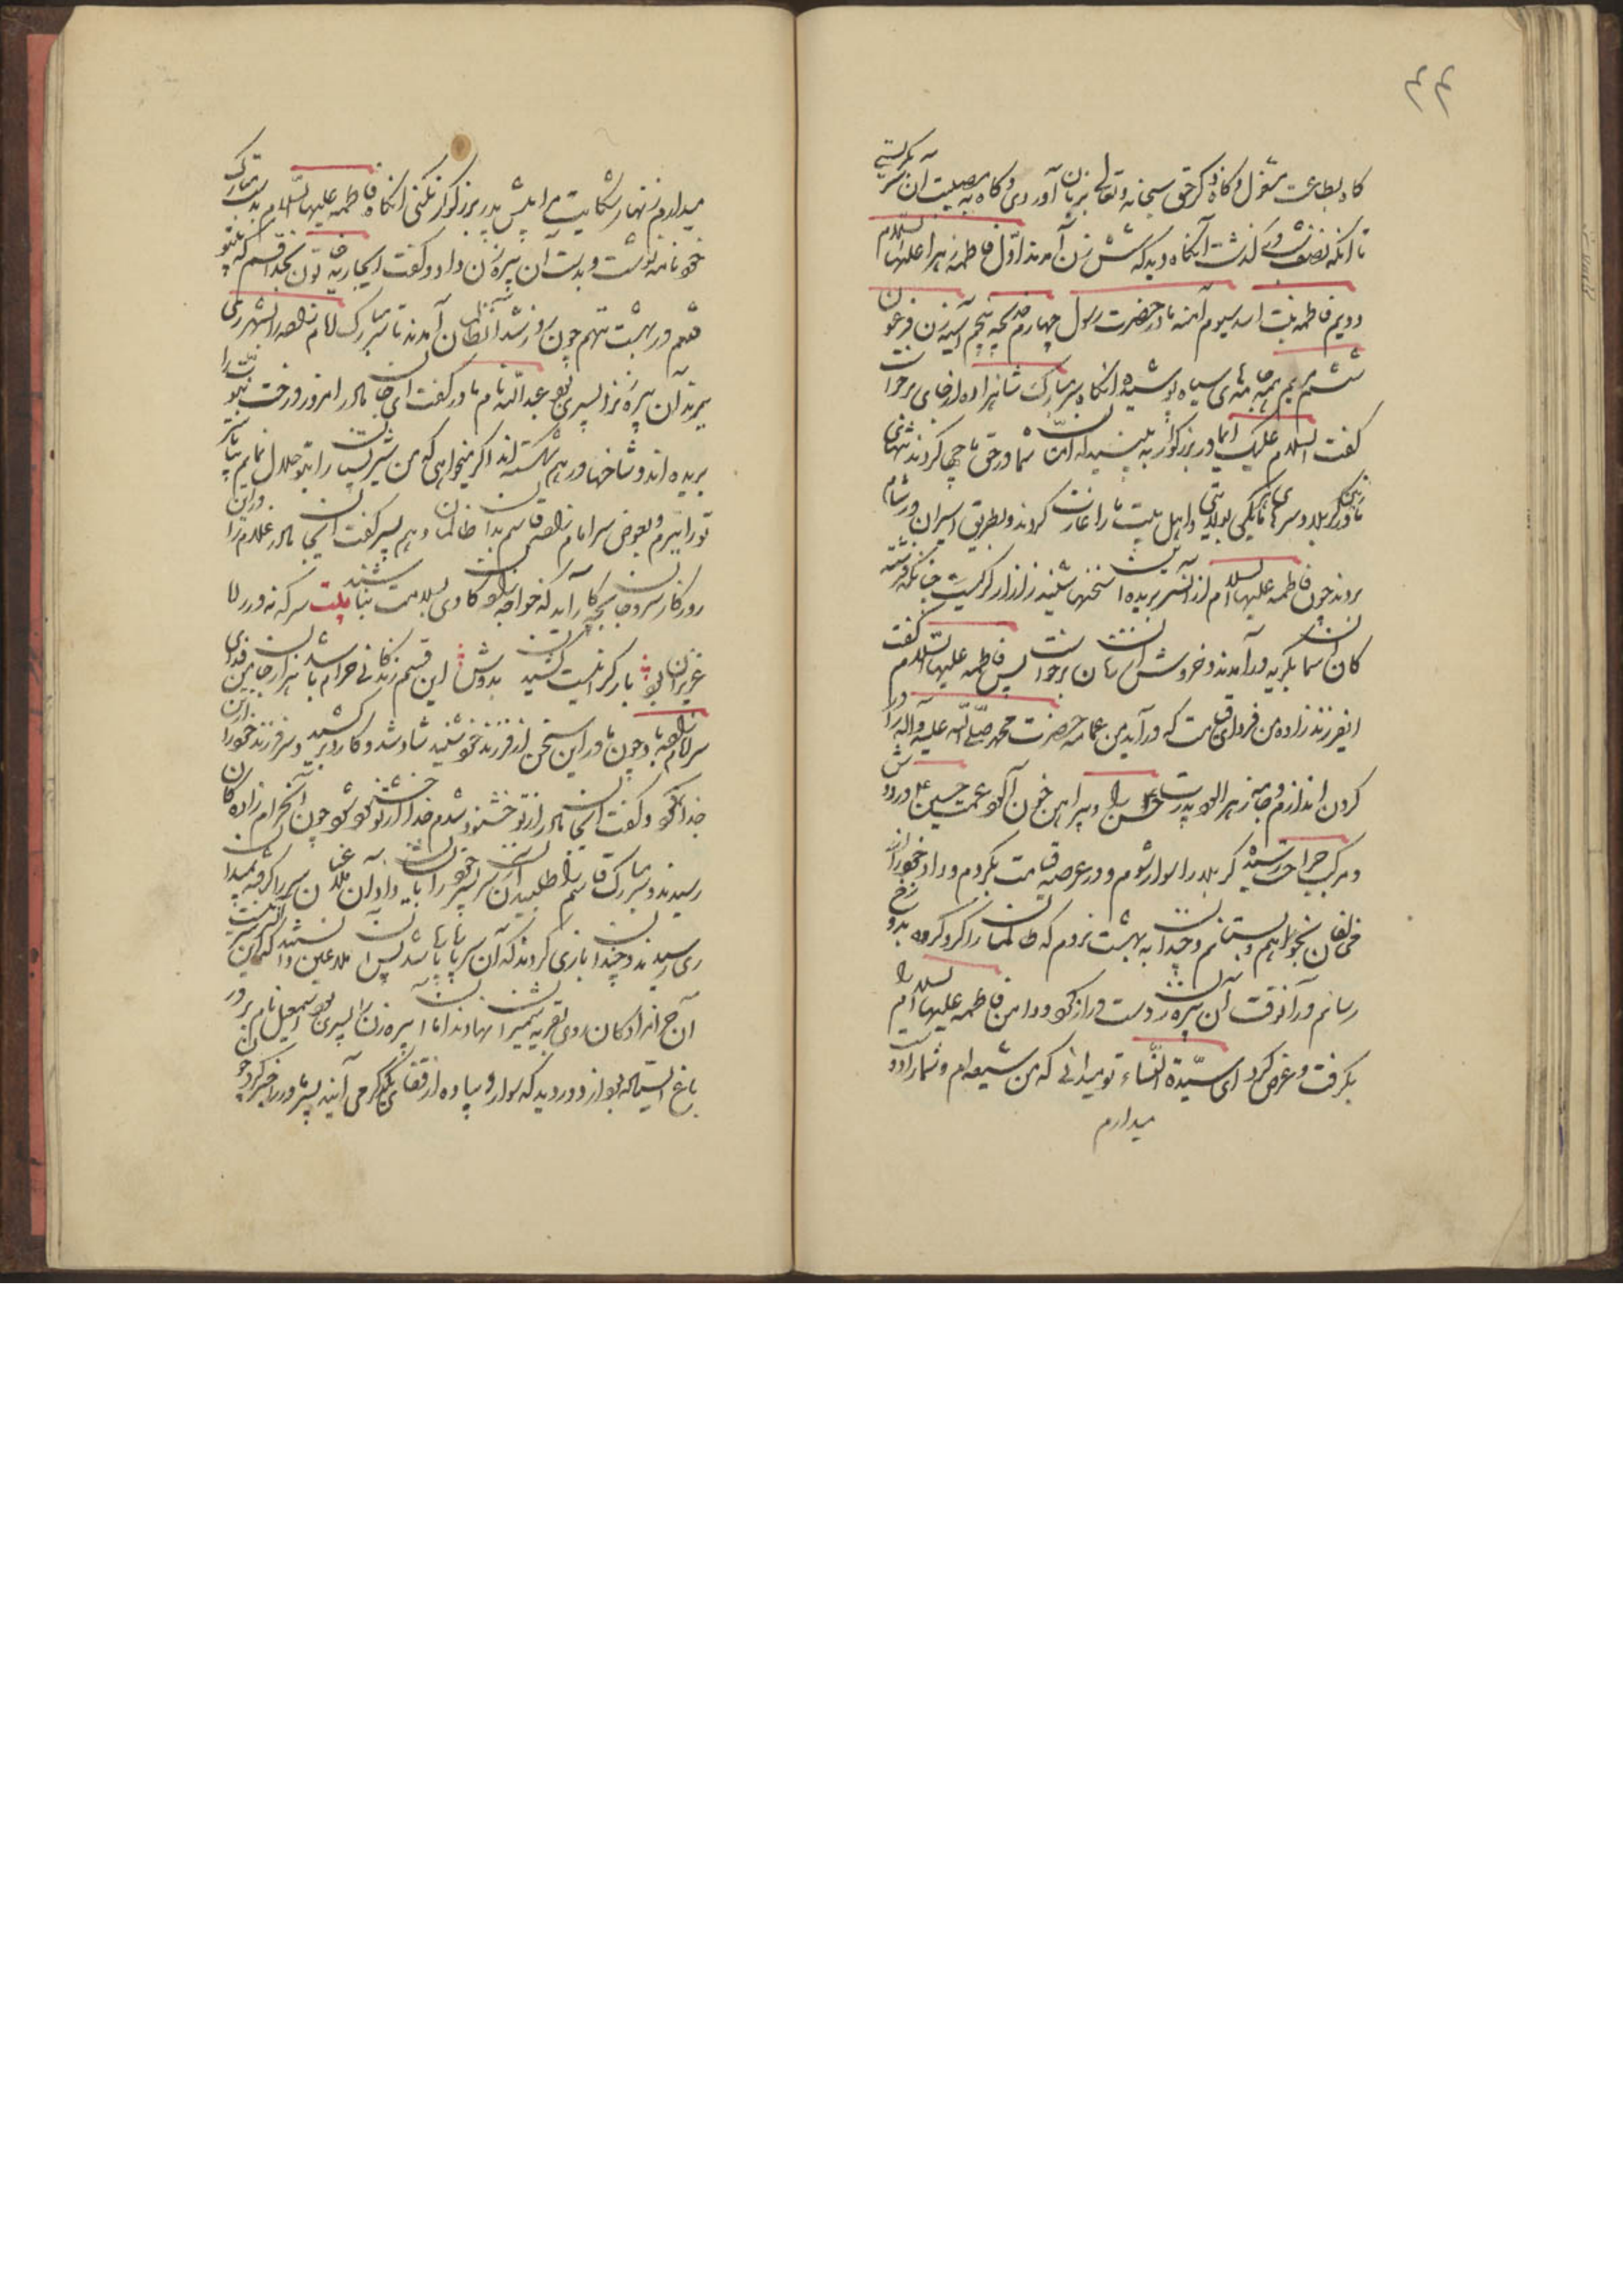 ۴۴
کاه بطاعت مشغول و کاه ذکر حق سبحانه و تعالی بر زبان آوردی و کاه به مصیبت آن سر بکریستی
تا آنکه نصف شب در کذشت آنکاه دید که شش زن آمدند اول فاطمه زهرا علیها السلام
دویم فاطمه بنت اسد سیوم آمنه مادر حضرت رسول چهارم خدیجه پنجم آسیه زن فرعون
ششم مریم همه جامهای سیاه پوشیده آنکاه سر مبارک شاهزاده از جای برخواست
کفت السلام علیک ایمادر بزرکوار به بینید که امت شما در حق ما چها کردند تنهای
ما در کربلا و سرهای ما و اهل بیت ما را غارت کردند و بطریق اسیران در شام
بردند چون فاطمه علیها السلام از آن سر بریده این سخنها شنید زار زار کریست چنانکه فرشته
کان آسمان بکریه در آمدند و خروش از ایشان برخواست پس فاطمه علیها السلام کفت
ایفرزند زاده من فردای قیامت که در آید من عمامه حضرت محمد صلی الله علیه و اله را در
کردن اندازم و جامه زهر الود پدرت حسن را و پیراهن خون آلود عمت حسین ع در دوش
و مرکب کربلا را سوار شوم و در عرصه قیامت بکردم و داد خود از
مخالفان بخواهم و بستانم و چندان به بهشت نروم که ظالمان را کروه کروه بدوزخ
رسانم در آنوقت آن پیره زن دست دراز کرد و دامن فاطمه علیها السلام را
بکرفت و عرض کرد ای سیدة النساء تو میدانی که من شیعه ام و شما را دوست
میدارم
میدارم زنهار شکایت مرا پیش پدر بزرکوار نکنی آنکاه فاطمه علیها السلام بدست مبارک
خود نامه نوشت و بدست آن پیره زن داد و کفت ایجاریه خاتون بخدا قسم که بیتو
قدم در بهشت ننهم چون روز شد آن ظالمان آمدند تا سر مبارک امام زاده را بشهر ری
برند آن پیره زن پسری بود عبدالله نام مادر کفت ای جان مادر امروز درخت نبوت را
بریده اند و شاخها در هم شکسته اند اکر میخواهی که من شیر پستان را بتو حلال نمایم بیا تا سر
تو را ببرم و بعوض سر امام زاده قاسم بدان ظالمان دهم پسر کفت ایجان مادر غلام را در این
روزکار سر و جان بچه کار آید که خواجه زاده او بسلامت نباشد بیت سر که نه در راه
عزیزان بود بار کرانیست کشیدن بدوش این قسم زندکانی حرام باشد هزار جان من فدای
سر امام زاده باد چون مادر این سخن از فرزند خود شنید شاد شد و کارد بر کشید و سر فرزند خود را از تن
جدا کرد و کفت ایجان مادر از تو خشنود شدم خدا از تو خشنود شود چون آن حرام زاده کان
رسیدند و سر مبارک قاسم را طلبیدند آن زن سر پسر خود را بایشان داد آن ملاعین سر را کرفته بمیدان
ری رسیدند و چندان بازی کردند که آن سر پاره پاره شد پس ملاعین دانستند که این سر
آن خارجی زاده کان روی بقریه شمیران نهادند اما آن پیره زن را پسری بود اسمعیل نام بر در
باغ ایستاده بود از دور دید که سوار و پیاده از قفای یکدیکر می آیند پسر مادر را خبر کرد چون